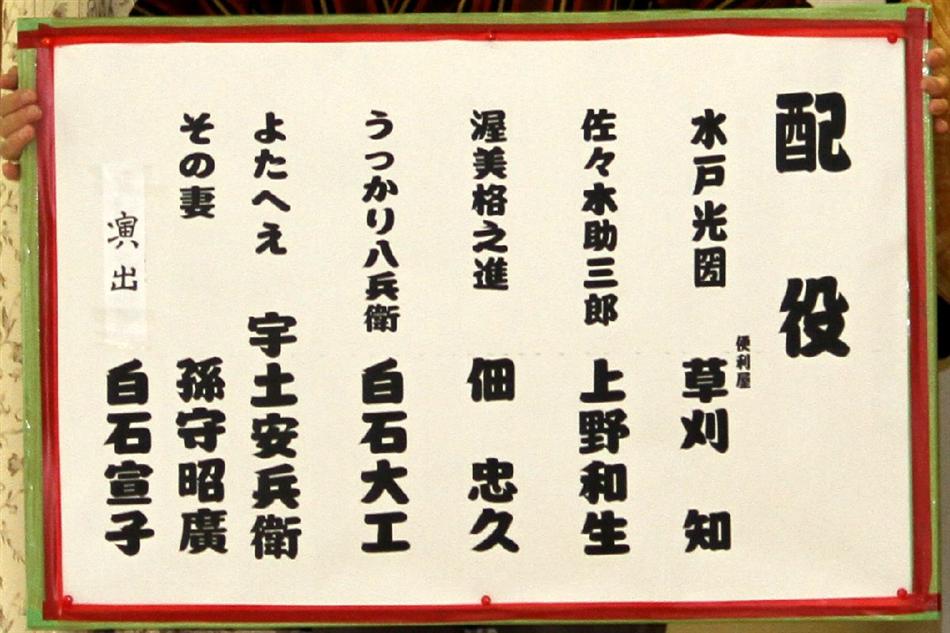 配役
水戸光圀 便利屋 草刈 知
佐々木助三郎 上野和生
渥美格之進 佃 忠久
うっかり八兵衛 白石大工
よたへえ 宇土安兵衛
その妻 孫守昭廣
演出 白石宣子